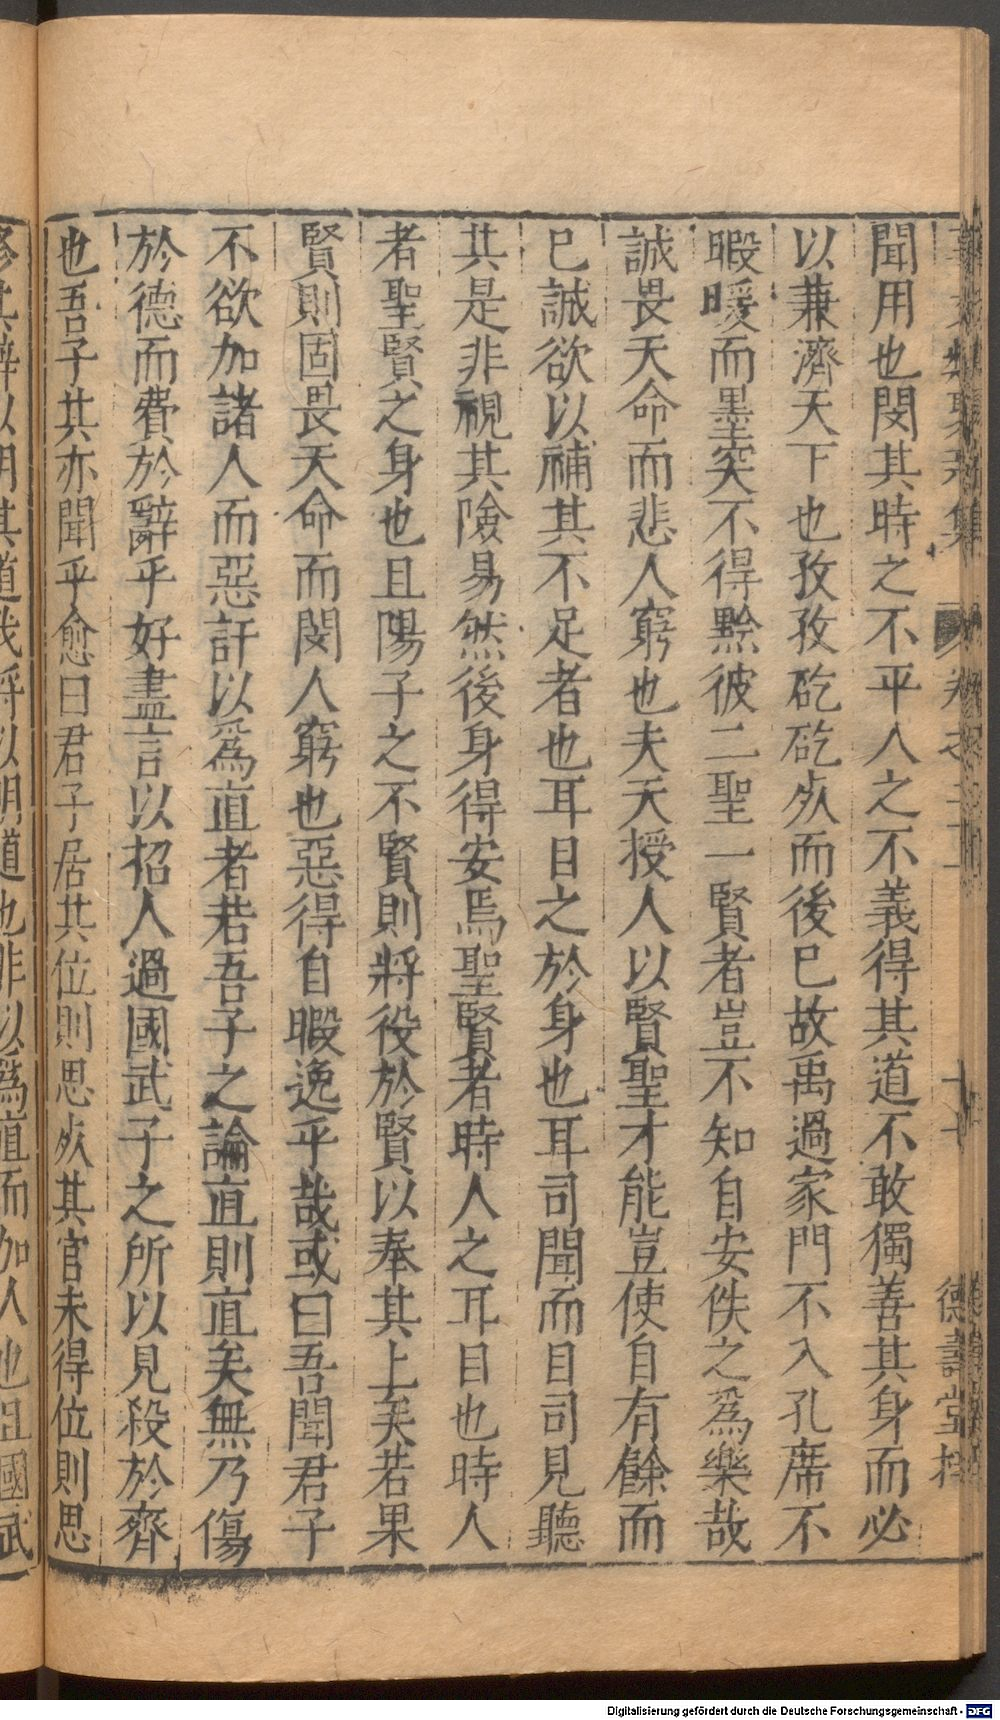 聞用也閔其時之不平人之不義得其道不敢獨善其身而必
以兼濟天下也孜孜矻矻死而後已故禹過家門不入孔席不
暇暖而墨突不得黔彼二聖一賢者豈不知自安佚之爲樂哉
誠畏天命而悲人窮也夫天授人以賢聖才能豈使自有餘而
已誠欲以補其不足者也耳目之於身也耳司聞而目司見聽
其是非視其險易然後身得安焉聖賢者時人之耳目也時人
者聖賢之身也且陽子之不賢則將役於賢以奉其上矣若果
賢則固畏天命而閔人窮也惡得自暇逸乎哉或曰吾聞君子
不欲加諸人而惡訐以爲直者若吾子之論直則直矣無乃傷
於德而費於辭乎好盡言以招人過國武子之所以見殺於齊
也吾子其亦聞乎愈曰君子居其位則思死其官未得位則思
修其辭以明其道我將以明道也非以爲直而加人也且國武
德壽堂梓
Digitalisierung gefördert durch die Deutsche Forschungsgemeinschaft - DFG